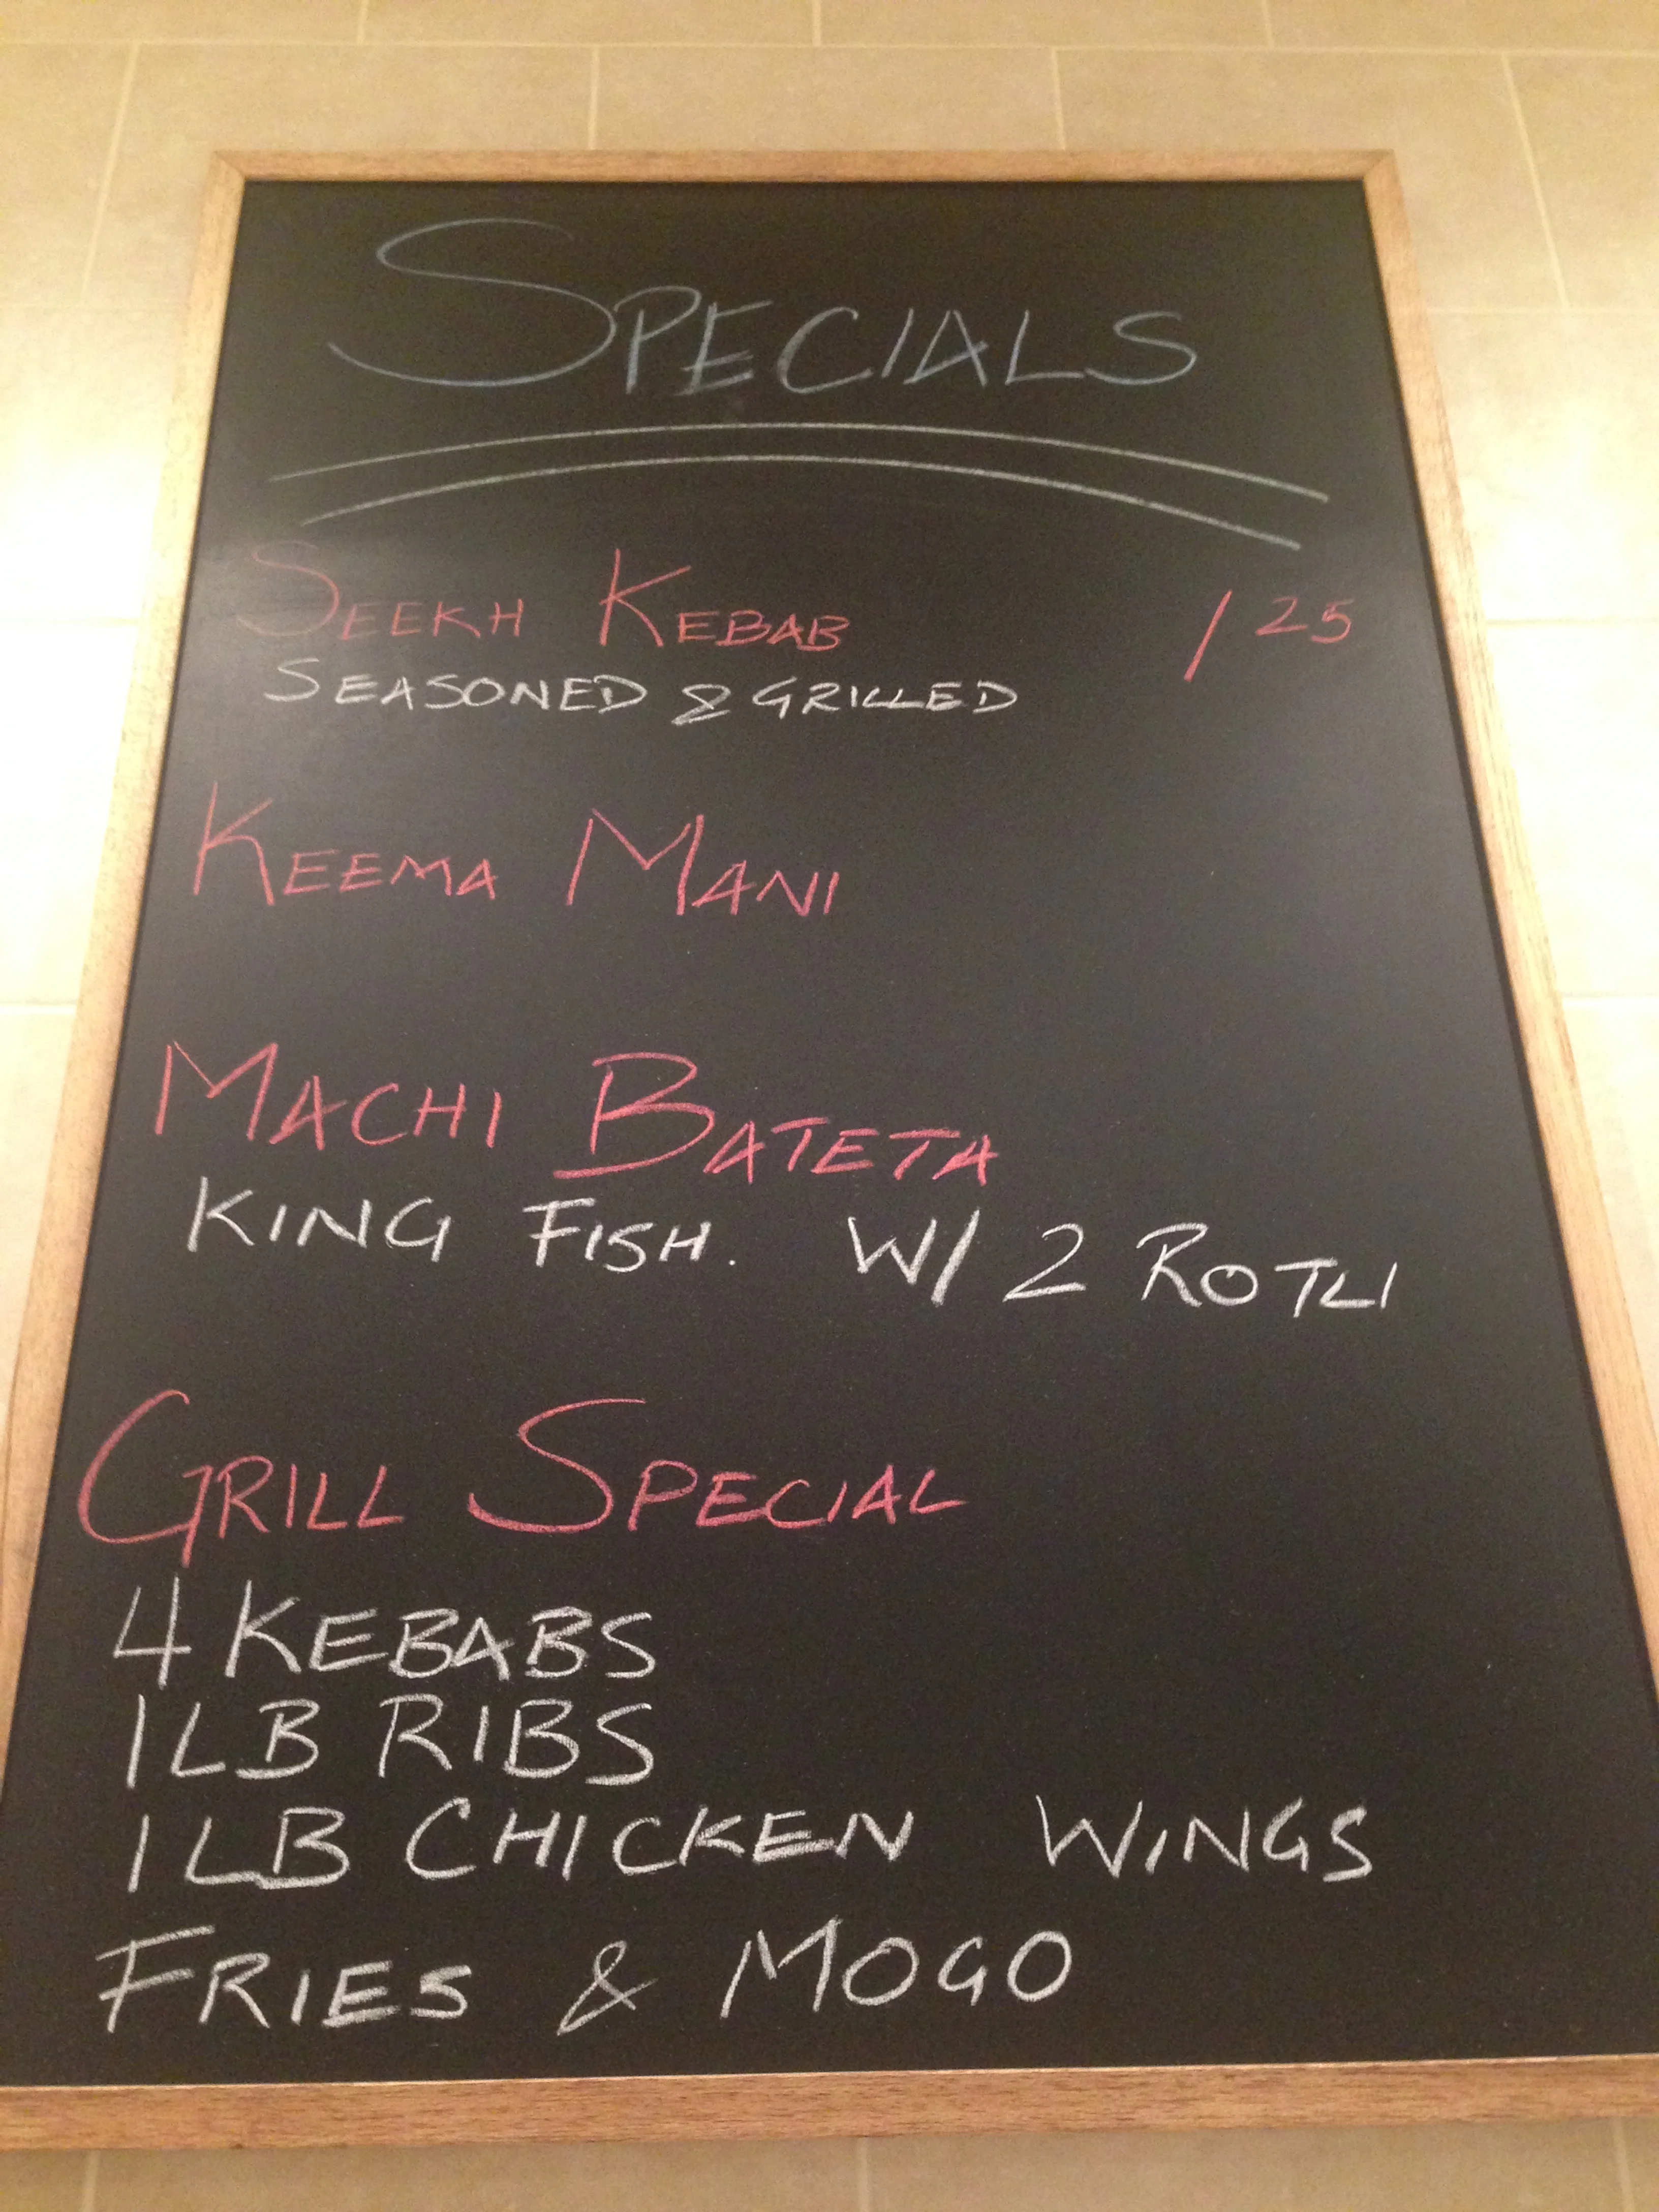 SPECIALS
SEEKH KEBAB 1 25
SEASONED & GRILLED
KEEMA MANI
MACHI BATETA
KING FISH. W/ 2 ROTLI
GRILL SPECIAL
4 KEBABS
1 LB RIBS
1 LB CHICKEN WINGS
FRIES & MOGO